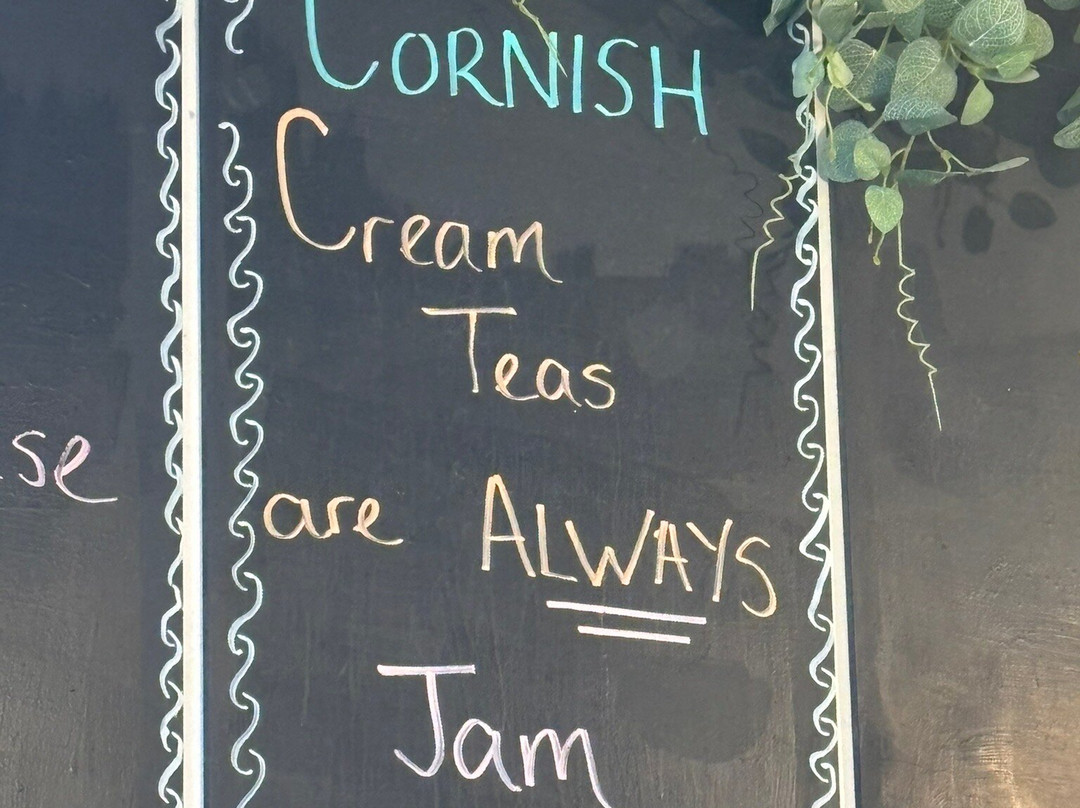 CORNISH
Cream
Teas
are ALWAYS
Jam
se